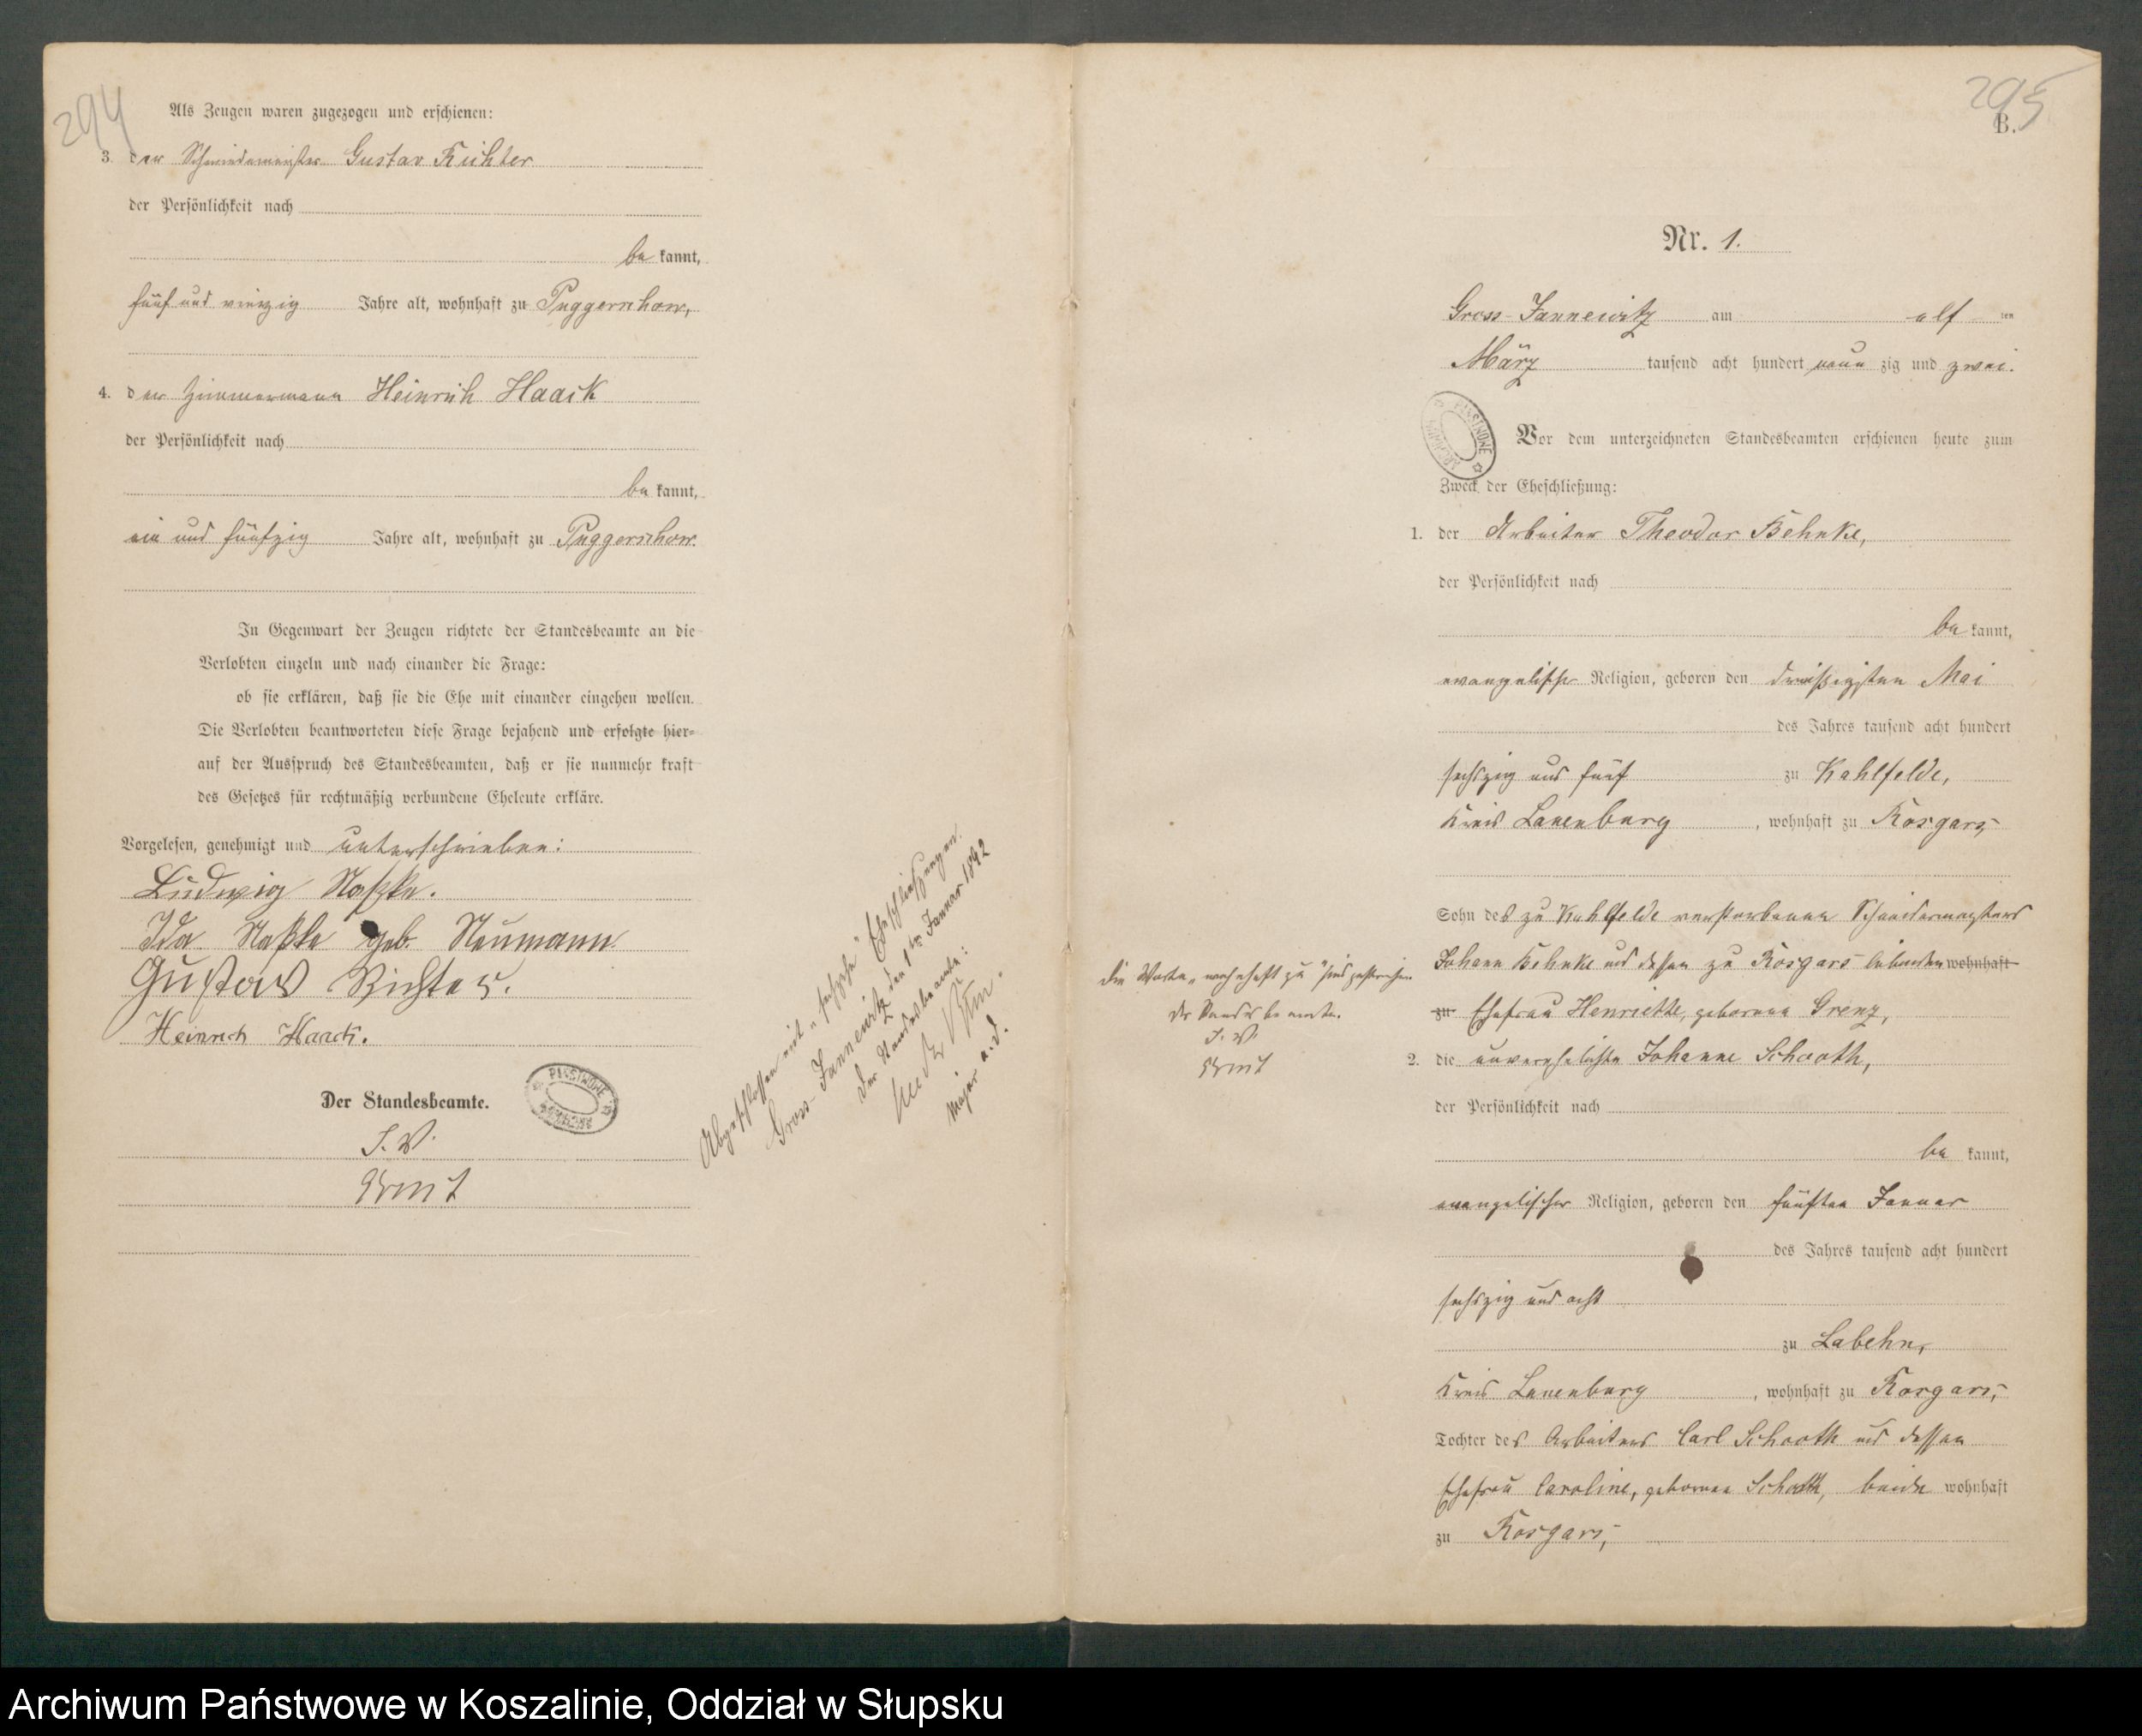 294
Als Zeugen waren zugezogen und erschienen:
3. der Schmiedemeister Gustav Richter
der Persönlichkeit nach
be kannt,
fünf und vierzig Jahre alt, wohnhaft zu Puggerschow,
4. der Zimmermann Heinrich Haack
der Persönlichkeit nach
be kannt,
ein und fünfzig Jahre alt, wohnhaft zu Puggerschow.
In Gegenwart der Zeugen richtete der Standesbeamte an die
Verlobten einzeln und nach einander die Frage:
ob sie erklären, daß sie die Ehe mit einander eingehen wollen.
Die Verlobten beantworteten diese Frage bejahend und erfolgte hier-
auf der Ausspruch des Standesbeamten, daß er sie nunmehr kraft
des Gesetzes für rechtmäßig verbundene Eheleute erkläre.
Vorgelesen, genehmigt und unterschrieben:
Ludwig
Ida geb. Neumann
Gustav Richter.
Heinrich Haack.
Der Standesbeamte.
I. V.
PAŃSTWOWE ARCHIWUM
Abgeschlossen mit " sechszehn " Eheschließungen.
Gross-Jannewitz den 1ten Januar 1892
Der Standesbeamte:
Major a. D.
295
B.
Nr. 1.
Gross-Jannewitz am elf ten
März tausend acht hundert neun zig und zwei.
PAŃSTWOWE ARCHIWUM
Vor dem unterzeichneten Standesbeamten erschienen heute zum
Zweck der Eheschließung:
1. der Arbeiter Theodor Behnke,
der Persönlichkeit nach
be kannt,
evangelischer Religion, geboren den dreißigsten Mai
des Jahres tausend acht hundert
sechszig und fünf zu Kahlfelde,
Kreis Lauenburg, wohnhaft zu Rosgars,
Sohn des zu Kahlfelde verstorbenen Schneidermeisters
Johann Behnke und dessen zu Rosgars lebenden wohnhaft
zu Ehefrau Henriette, geborene Grenz,
Die Worte " wohnhaft zu " sind gestrichen.
Der Standesbeamte.
I. V.
2. die unverehelichte Johanne Schooth,
der Persönlichkeit nach
be kannt,
evangelischer Religion, geboren den fünften Januar
des Jahres tausend acht hundert
sechszig und acht
zu Labehn,
Kreis Lauenburg, wohnhaft zu Rosgars,
Tochter des Arbeiters Carl Schooth und dessen
Ehefrau Caroline, geborene beide wohnhaft
zu Rosgars,
Archiwum Państwowe w Koszalinie, Oddział w Słupsku